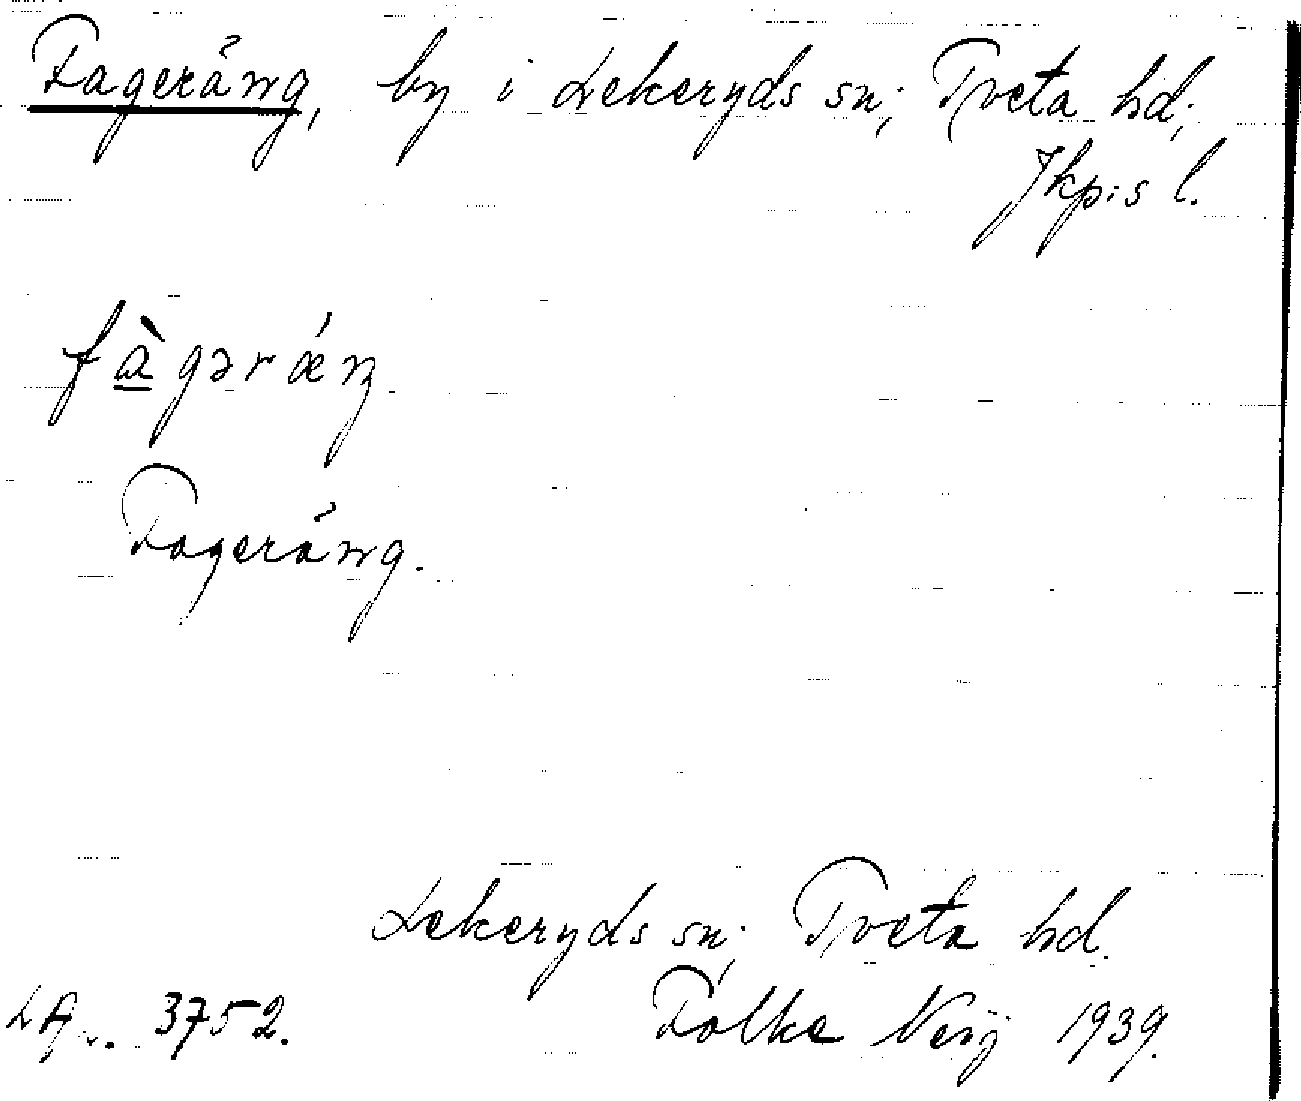 Fageräng, by i Lekeryds sn; Tveta hd;
Jkp:s l.
fàgəráŋ
Fageräng.
Lekeryds sn; Tveta hd.
LA. 3752. Folke Neij 1939.